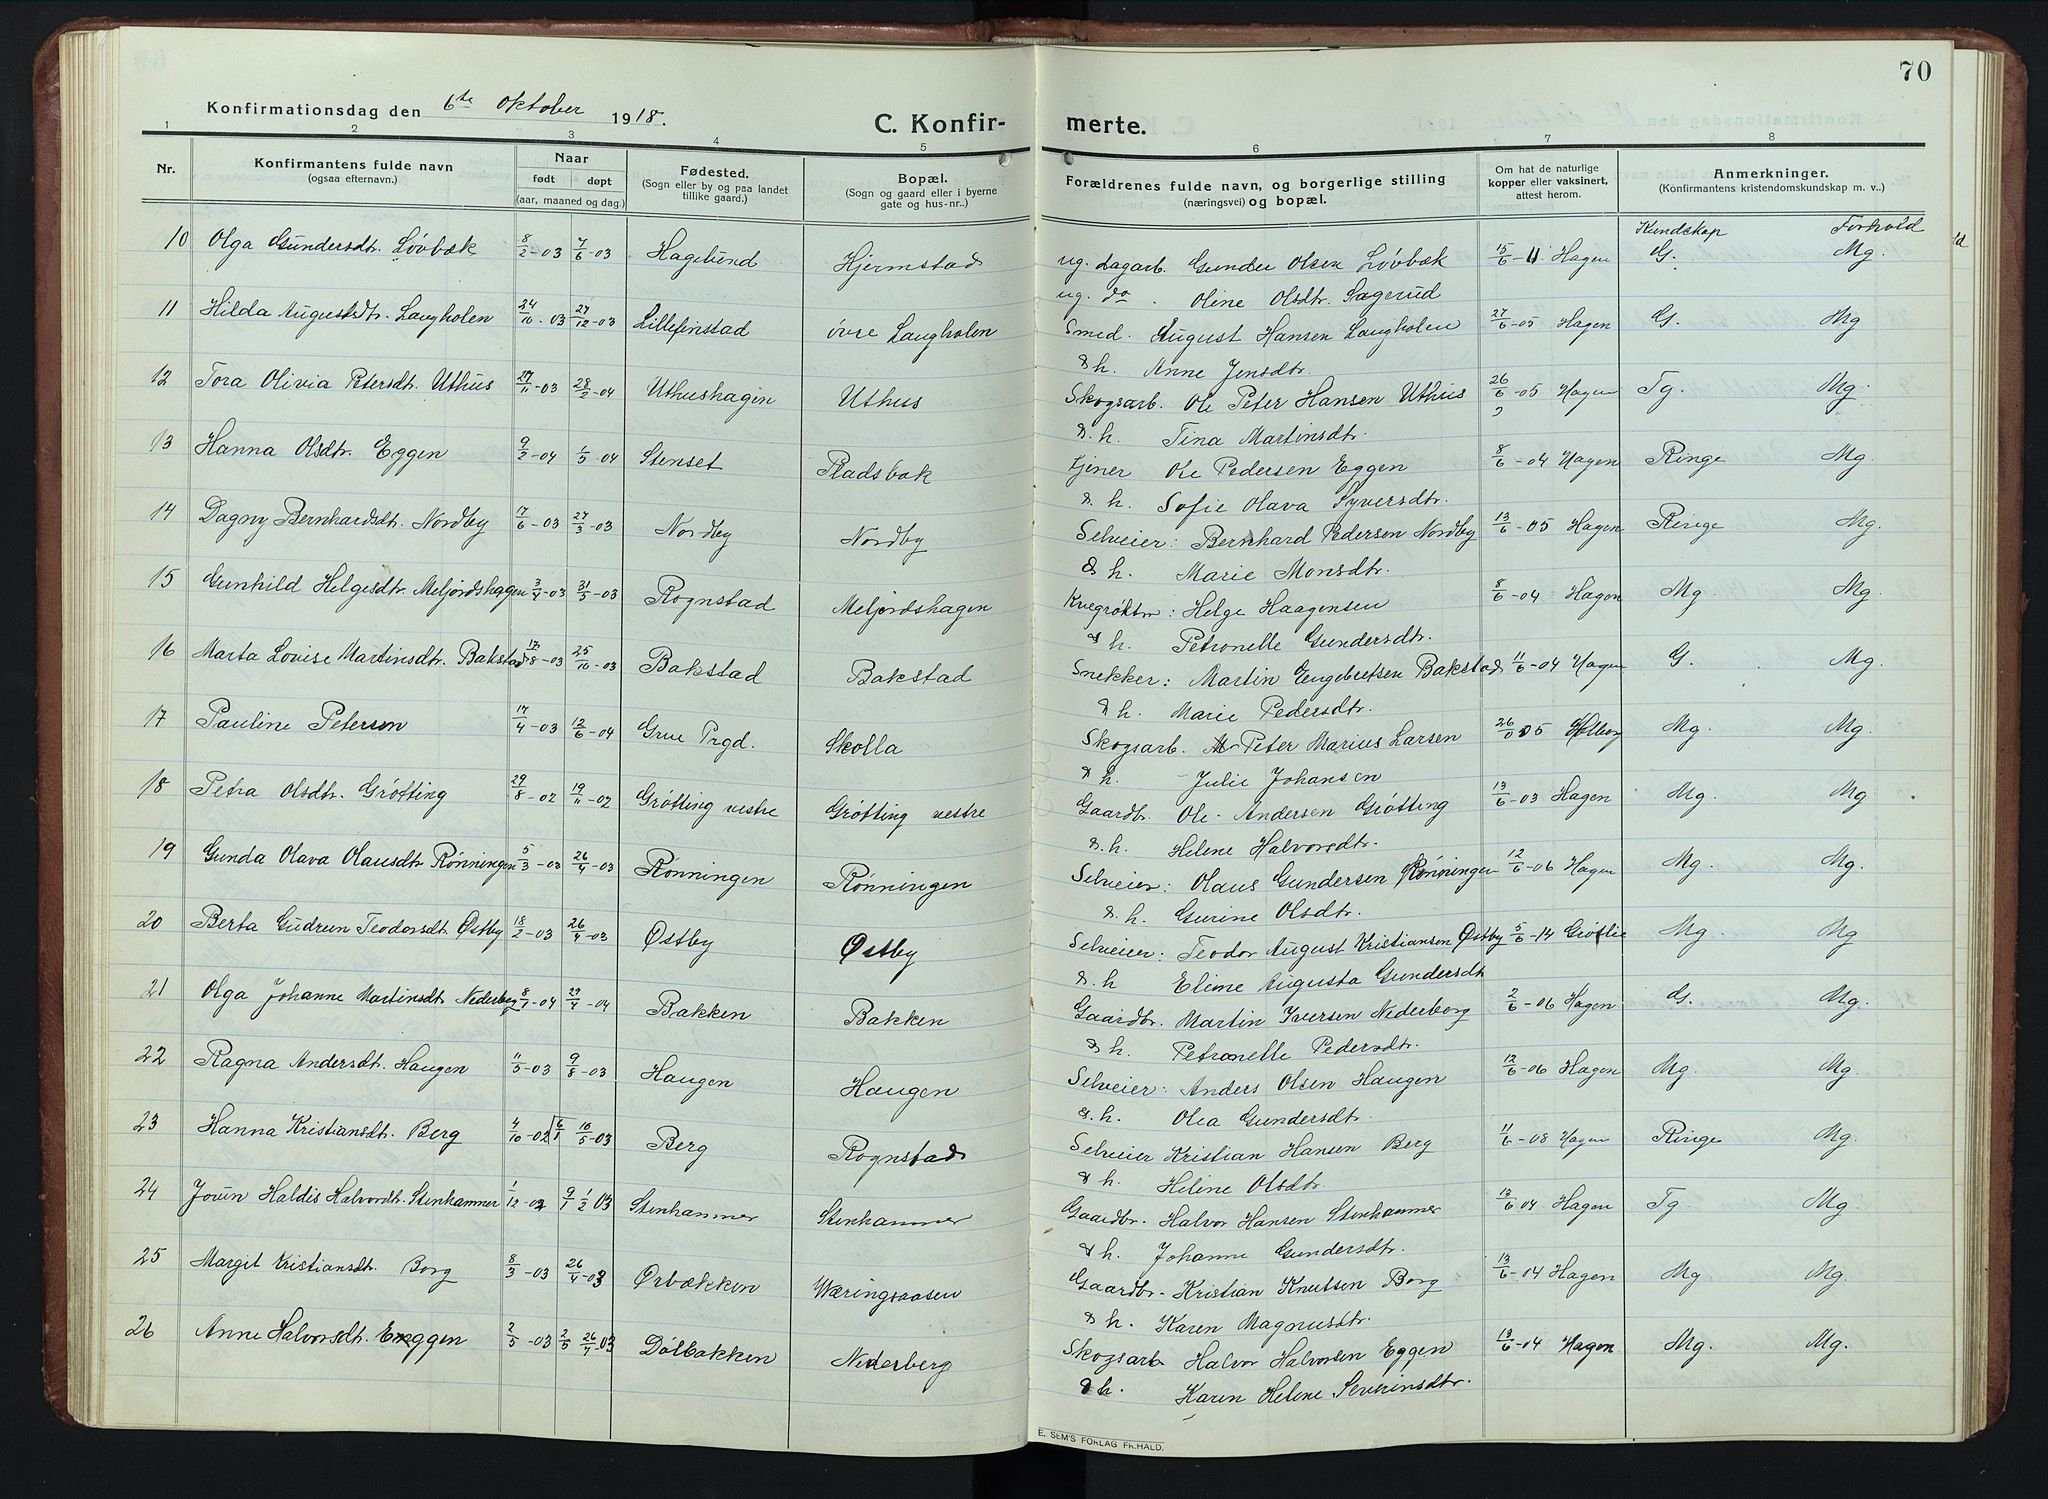 70
Konfirmationsdag den 6te oktober 1918.
C. Konfir- merte.
1 2 3 4 5 6 7 8
Nr.
Konfirmantens fulde navn
(ogsaa efternavn.)
Naar
født døpt
(aar, maaned og dag.)
Fødested.
(Sogn eller by og paa landet
tillike gaard.)
Bopæl.
(Sogn og gaard eller i byerne
gate og hus-nr..)
Forældrenes fulde navn, og borgerlige stilling
(næringsvei) og bopæl.
Om hat de naturlige
kopper eller vaksinert,
attest herom.
Anmerkninger.
(Konfirmantens kristendomskundskap m. v..)
Kundskap Forhold
10 Olga Gundersdtr. Løvbæk 8/2-03 7/6-03 Hagelund Hjermstad ug. dagarb. Gunder Olsen Løvbæk 15/6-11 Hagen G. Mg.
ug. do. Oline Olsdtr. Sagerud
11 Hilda Augustsdtr. Langholen 24/10-03 27/12-03 Lillefinstad øvre Langholen Smed. August Hansen Langholen 27/6-05 Hagen G. Mg
& h. Anne Jensdtr.
12 Tora Olivia Petersdtr. Uthus 27/11-03 28/2-04 Uthushagen Uthus Skogsarb. Ole Peter Hansen Uthus 26/6-05 Hagen Tg. Mg.
& h. Tina Martinsdtr.
13 Hanna Olsdtr. Eggen 9/2-04 1/5-04 Stenset Pladsbak tjener Ole Pedersen Eggen 8/6-04 Hagen Ringe Mg
& h. Sofie Olava Syversdtr.
14 Dagny Bernhardsdtr. Nordby 17/6-03 27/3-03 Nordby Nordby Selveier: Bernhard Pedersen Nordby 13/6-05 Hagen Ringe Mg.
& h. Marie Monsdtr.
15 Gunhild Helgesdtr. Meljordshagen 3/4-03 31/5-03 Rognstad Meljordshagen Kvegrøktr: Helge Haagensen 8/6-04 Hagen Mg. Mg.
& h. Petronelle Gundersdtr.
16 Marta Lovise Martinsdtr. Bakstad 17/8-03 25/10-03 Bakstad Bakstad Snekker: Martin Engebretsen Bakstad 11/6-04 Hagen G. Mg.
& h. Marie Pedersdtr.
17 Pauline Petersen 17/4-03 12/6-04 Grue Prgd. Skolla Skogsarb. Peter Marius Larsen Mg. Mg.
& h. Julie Johansen
18 Petra Olsdtr. Grøtting 29/8-02 19/11-02 Grøtting vestre Grøtting vestre Gaardbr. Ole Andersen Grøtting 13/6-03 Hagen Mg. Mg
& h. Helene Halvorsdtr.
19 Gunda Olava Olausdtr Rønningen 5/3-03 26/4-03 Rønningen Rønningen Selveier: Olaus Gundersen Rønningen 12/6-06 Hagen Mg. Mg.
& h. Gurine Olsdtr.
20 Berta Gudrun Teodorsdt. Østby 18/2-03 26/4-03 Østby Østby Selveier: Teodor August Kristiansen Østby 5/6-14 Grøtlie Mg. Mg
& h Eline Augusta Gundersdt
21 Olga Johanne Martinsdt. Nederberg 8/1-04 29/4-04 Bakken Bakken Gaardbr. Martin Iversen Nederberg 2/6-06 Hagen G. Mg.
& h. Petronelle Pedersdtr.
22 Ragna Andersdtr. Haugen 11/5-03 9/8-03 Haugen Haugen Selveier: Anders Olsen Haugen 12/6-06 Hagen Mg. Mg.
& h. Olea Gundersdtr.
23 Hanna Kristiansdtr. Berg 4/10-02 6/1 10/5-03 Berg Rognstad Selveier Kristian Hansen Berg 11/6-08 Hagen Ringe Mg.
& h. Heline Olsdtr.
24 Jorun Haldis Halvordtr. Stenhammer 1/12-02 9/1 1/2 03 Stenhammer Stenhammer Gaardbr. Halvor Hansen Stenhammer 13/6 04 Hagen Tg. Mg.
& h. Johanne Gundersdtr.
25 Margit Kristiansdtr. Borg 8/3-03 26/4-03 Ørbækken Wæringsaasen Gaardbr. Kristian Knutsen Borg 13/6-04 Hagen Mg. Mg.
& h. Karen Magnusdtr.
26 Anne Halvorsdtr. Eggen 2/5-03 2/5 26/7-03 Dølbakken Nederberg Skogsarb Halvor Halvorsen Eggen 13/6-04 Hagen Mg. Mg.
& h. Karen Helene Severinsdtr.
E. SEM'S FORLAG FR.HALD.